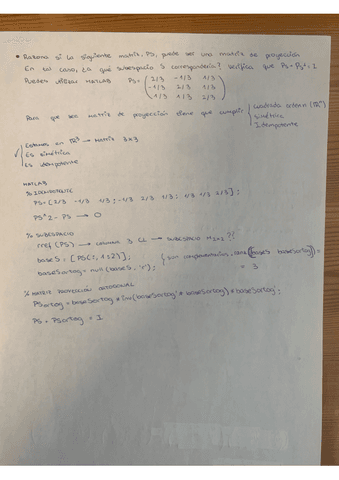 • Razona si la siguiente matriz, PS, puede ser una matriz de proyección
En tal caso, ¿a qué subespacio S correspondería? Verifica que PS + PS⊥ = I
Puedes utilizar MATLAB PS = ( 2/3 -1/3 1/3
-1/3 2/3 1/3
1/3 1/3 2/3 )
Para que sea matriz de proyección tiene que cumplir { cuadrada orden n (ℝⁿ)
simétrica
Idempotente
Estamos en ℝ³ → Matriz 3x3
Es simétrica
Es idempotente
MATLAB
% IDEMPOTENTE
PS = [2/3 -1/3 1/3; -1/3 2/3 1/3; 1/3 1/3 2/3];
PS^2 - PS → 0
% SUBESPACIO
rref(PS) → columna 3 CL → subespacio
baseS = [PS(:, 1:2)];
baseSortog = null(baseS', 'r'); { son complementarios, rank([baseS baseSortog]) =
= 3
% MATRIZ PROYECCIÓN ORTOGONAL
PSortog = baseSortog * inv(baseSortog' * baseSortog) * baseSortog';
PS + PSortog = I